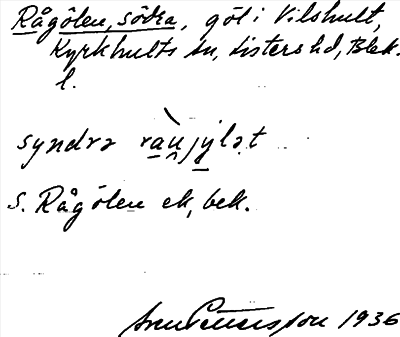 Rågölen, södra, göl i Vilshult,
Kyrkhults sn, Listers hd, Blek.
l.
syndrə ràu̯jylə.t
S. Rågölen ek, bek.
Pettersson 1936